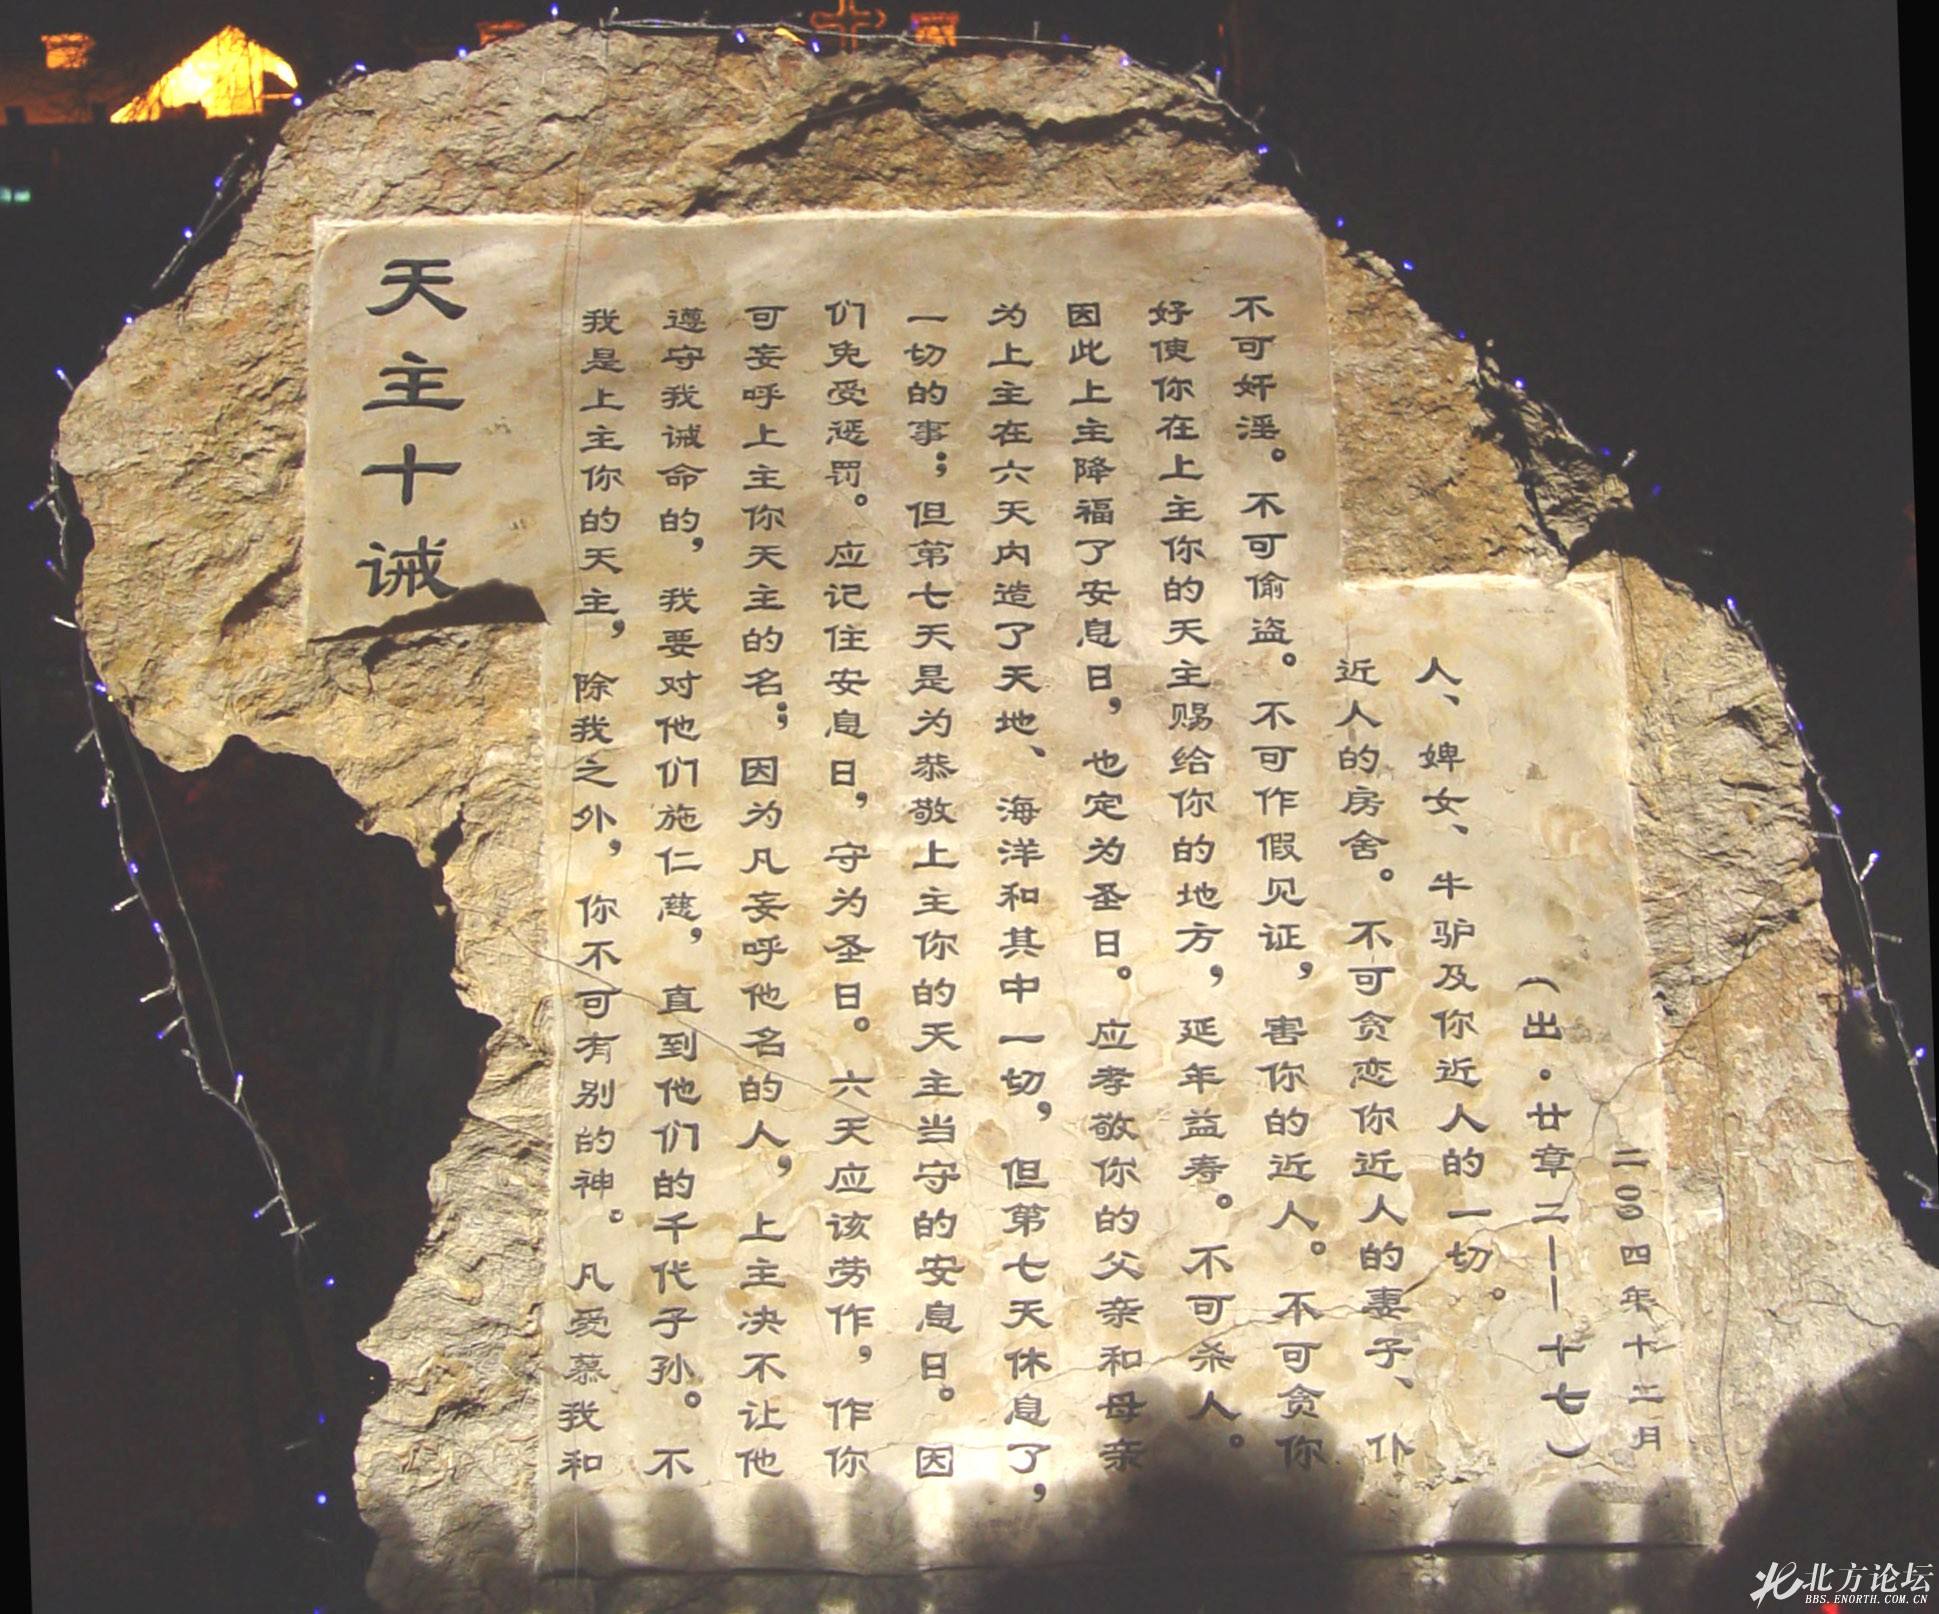 天主十诫
我是上主你的天主，除我之外，你不可有别的神。凡爱慕我和
遵守我诫命的，我要对他们施仁慈，直到他们的千代子孙。不
可妄呼上主你天主的名；因为凡妄呼他名的人，上主决不让他
们免受惩罚。应记住安息日，守为圣日。六天应该劳作，作你
一切的事；但第七天是为恭敬上主你的天主当守的安息日。因
为上主在六天内造了天地、海洋和其中一切，但第七天休息了，
因此上主降福了安息日，也定为圣日。应孝敬你的父亲和母亲
好使你在上主你的天主赐给你的地方，延年益寿。不可杀人。
不可奸淫。不可偷盗。不可作假见证，害你的近人。不可贪你
近人的房舍。不可贪恋你近人的妻子、仆
人、婢女、牛驴及你近人的一切。
（出·廿章二——十七）
二〇〇四年十二月
北方论坛
BBS.ENORTH.COM.CN